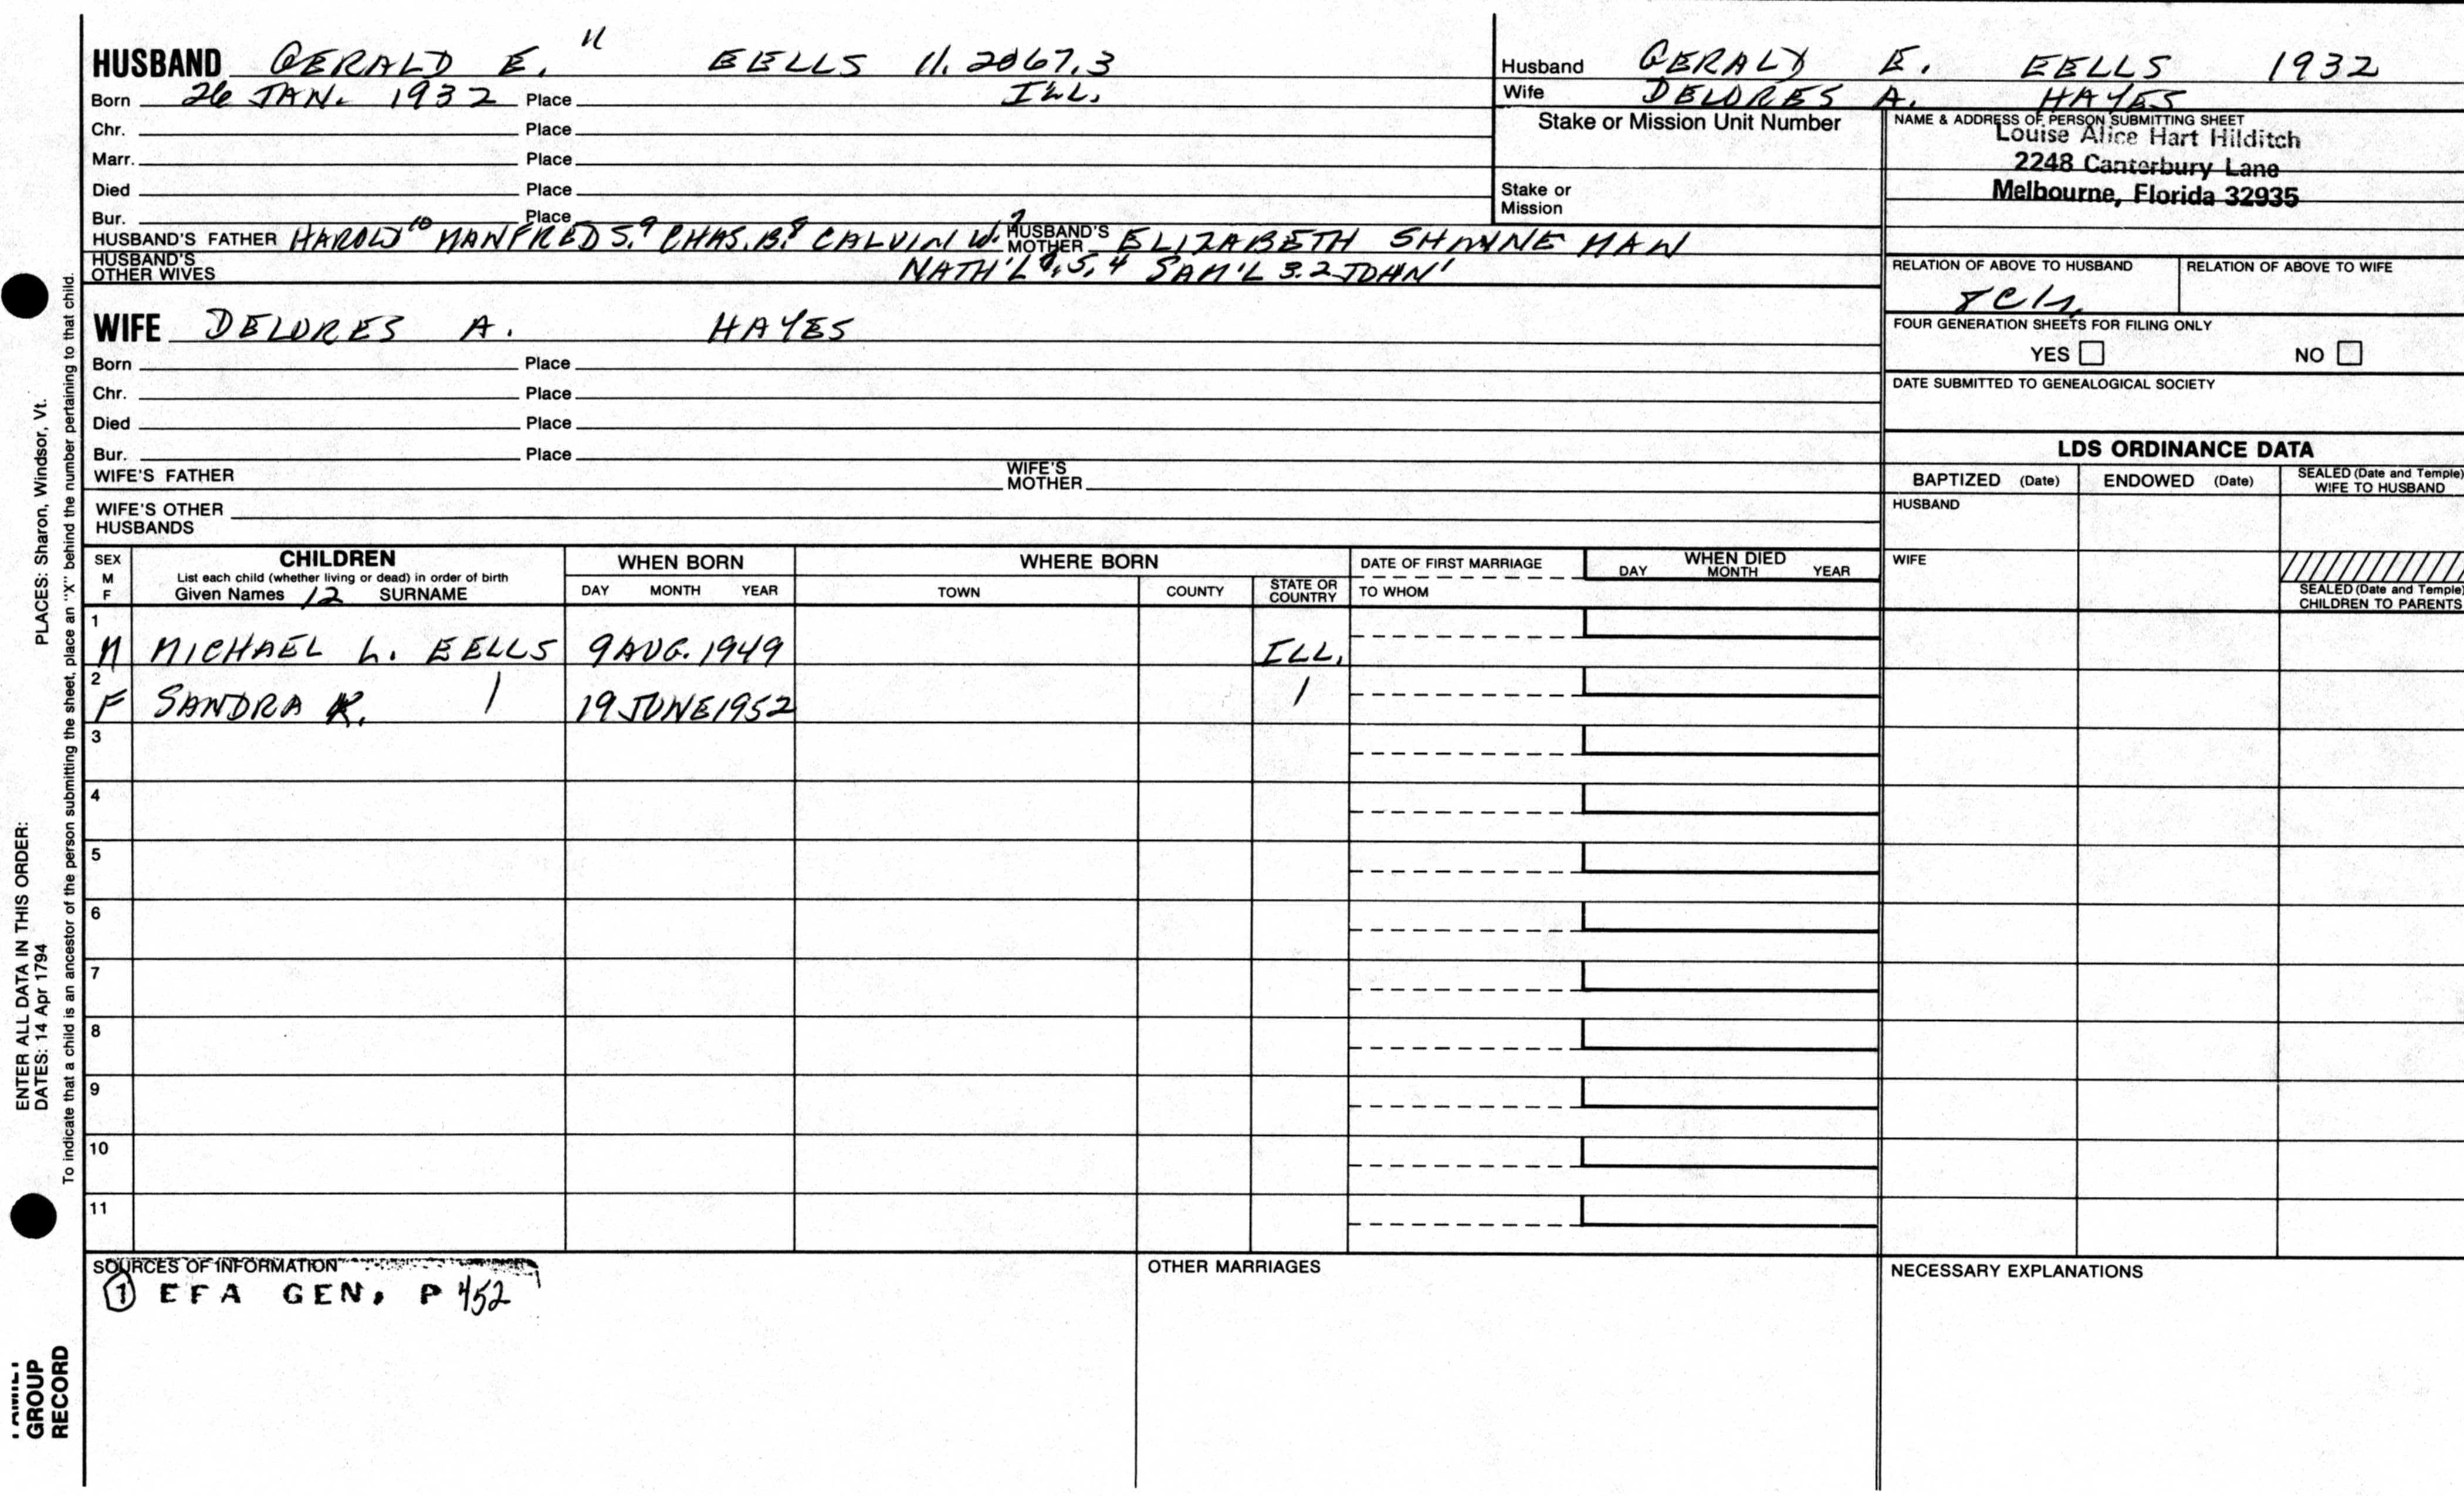 HUSBAND GERALD E. 11 EELLS 11.2067.3
Born 26 JAN. 1932 Place ILL.
Chr. Place
Marr. Place
Died Place
Bur. Place
HUSBAND'S FATHER HAROLD 10 MANFRED S. 9 CHAS. B. 8 CALVIN W. 7 HUSBAND'S MOTHER ELIZABETH
HUSBAND'S OTHER WIVES NATH'L 6, 5, 4 SAM'L 3. 2 JOHN 1
Husband GERALD E. EELLS 1932
Wife DELORES A. HAYES
Stake or Mission Unit Number
Stake or Mission
NAME & ADDRESS OF PERSON SUBMITTING SHEET
Louise Alice Hart Hilditch
2248 Canterbury Lane
Melbourne, Florida 32935
RELATION OF ABOVE TO HUSBAND RELATION OF ABOVE TO WIFE
FOUR GENERATION SHEETS FOR FILING ONLY
YES NO
DATE SUBMITTED TO GENEALOGICAL SOCIETY
WIFE DELORES A. HAYES
Born Place
Chr. Place
Died Place
Bur. Place
WIFE'S FATHER WIFE'S MOTHER
WIFE'S OTHER HUSBANDS
LDS ORDINANCE DATA
BAPTIZED (Date) ENDOWED (Date) SEALED (Date and Temple) WIFE TO HUSBAND
HUSBAND
WIFE
SEALED (Date and Temple) CHILDREN TO PARENTS
SEX M F
CHILDREN
List each child (whether living or dead) in order of birth
Given Names 12 SURNAME
WHEN BORN
DAY MONTH YEAR
WHERE BORN
TOWN COUNTY STATE OR COUNTRY
DATE OF FIRST MARRIAGE
TO WHOM
WHEN DIED
DAY MONTH YEAR
1
M MICHAEL L. EELLS 9 AUG. 1949 ILL.
2
F SANDRA K. 19 JUNE 1952
3
4
5
6
7
8
9
10
11
SOURCES OF INFORMATION
1 EFA GEN. P 452
OTHER MARRIAGES
NECESSARY EXPLANATIONS
ENTER ALL DATA IN THIS ORDER:
DATES: 14 Apr 1794
PLACES: Sharon, Windsor, Vt.
To indicate that a child is an ancestor of the person submitting the sheet, place an "X" behind the number pertaining to that child.
GROUP
RECORD